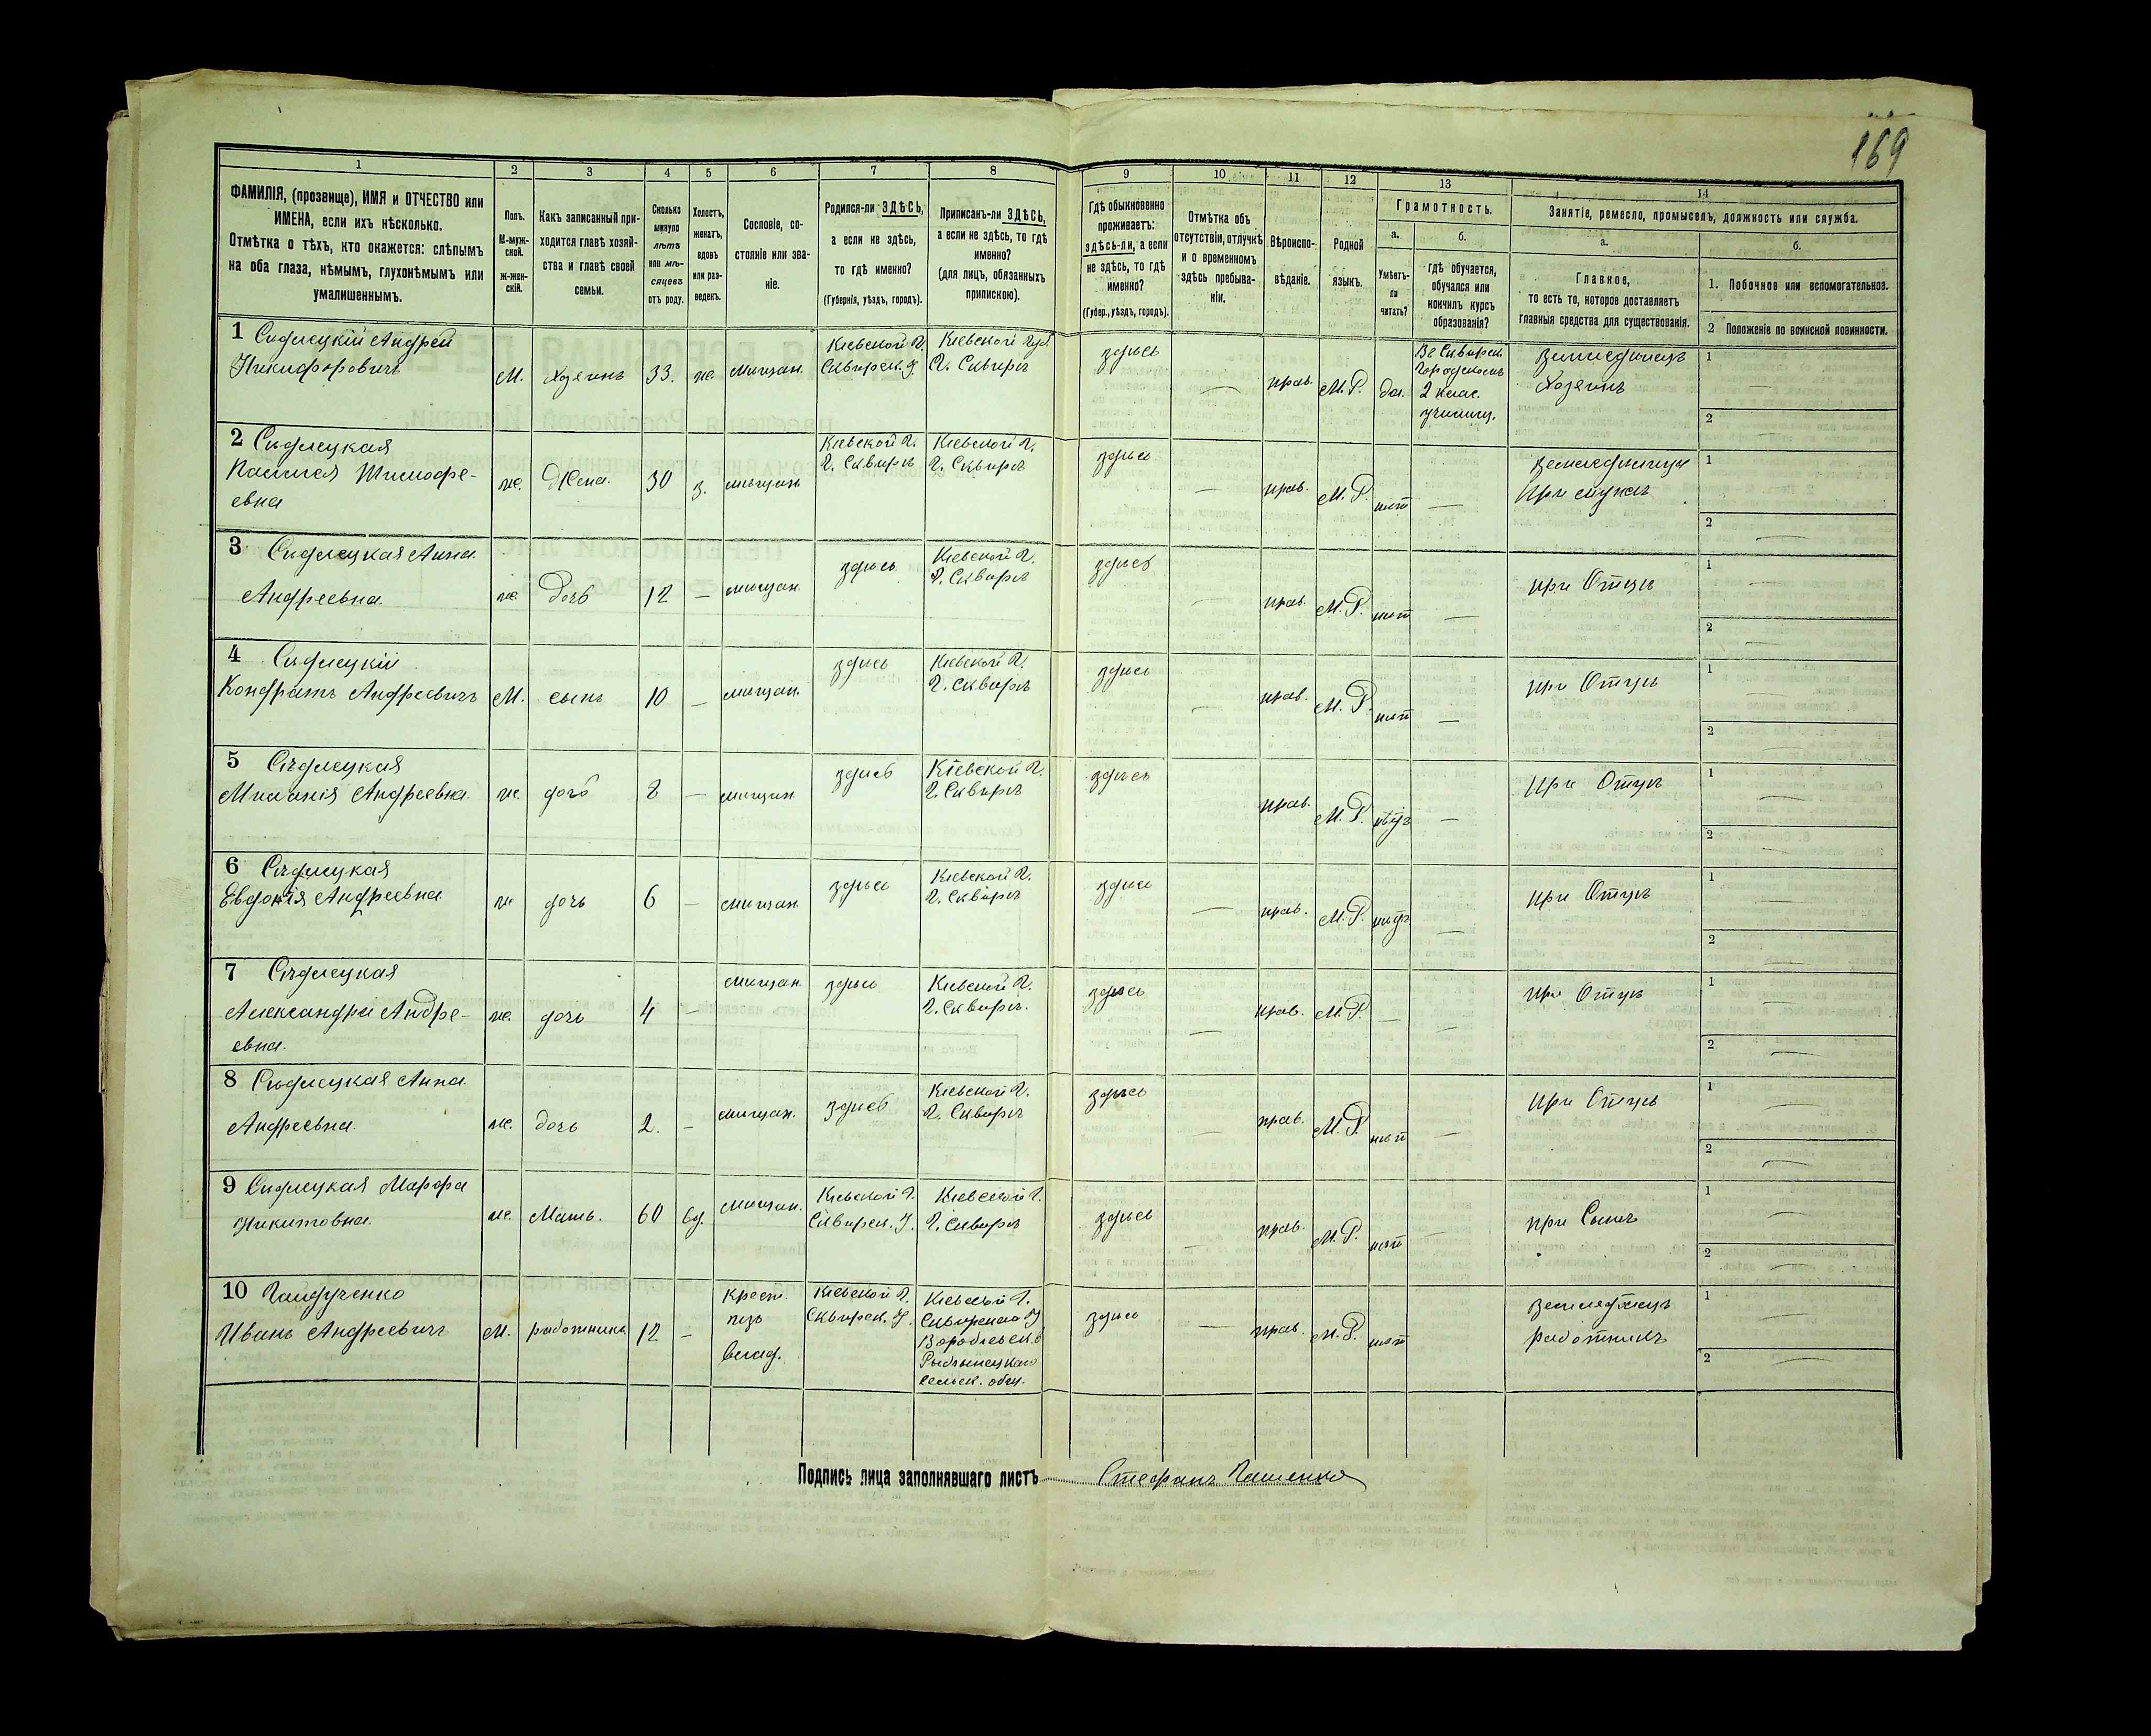 169
1 2 3 4 5 6 7 8 9 10 11 12 13 14
ФАМИЛІЯ, (прозвище), ИМЯ и ОТЧЕСТВО или
ИМЕНА, если ихъ нѣсколько.
Отмѣтка о тѣхъ, кто окажется: слѣпымъ
на оба глаза, нѣмымъ, глухонѣмымъ или
умалишеннымъ.
Полъ.
М-муж-
ской.
Ж-жен-
скій.
Какъ записанный при-
ходится главѣ хозяй-
ства и главѣ своей
семьи.
Сколько
минуло
лѣтъ
или мѣ-
сяцевъ
отъ роду.
Холостъ,
женатъ,
вдовъ
или раз-
веденъ.
Сословіе, со-
стояніе или зва-
ніе.
Родился-ли ЗДѢСЬ,
а если не здѣсь,
то гдѣ именно?
(Губернія, уѣздъ, городъ).
Приписанъ-ли ЗДѢСЬ,
а если не здѣсь, то гдѣ
именно?
(для лицъ, обязанныхъ
припискою).
Гдѣ обыкновенно
проживаетъ:
здѣсь-ли, а если
не здѣсь, то гдѣ
именно?
(Губер., уѣздъ, городъ).
Отмѣтка объ
отсутствіи, отлучкѣ
и о временномъ
здѣсь пребыва-
ніи.
Вѣроиспо-
вѣданіе.
Родной
языкъ.
Грамотность.
а.
Умѣетъ-
ли
читать?
б.
гдѣ обучается,
обучался или
кончилъ курсъ
образованія?
Занятіе, ремесло, промыселъ, должность или служба.
а.
Главное,
то есть то, которое доставляетъ
главныя средства для существованія.
б.
1. Побочное или вспомогательное.
2 Положеніе по воинской повинности.
1 Сѣдлецкій Андрей
Никифоровичъ
М. Хозяинъ 33. же. мѣщан.
Кіевской Г.
Сквирск. у.
Кіевской Губ.
Г. Сквирѣ
здѣсь — прав. М.Р. да.
Въ Сквирск.
Городскомъ
2 клас.
училищ.
Земледѣлецъ
Хозяинъ
1 —
2 —
2 Сѣдлецкая
Тимофе-
евна
же. Жена. 30 з. мѣщан.
Кіевской Г.
Г. Сквирѣ
Кіевской Г.
Г. Сквирѣ
здѣсь — прав. М.Р. нѣт —
Земледѣлица
При мужѣ
1 —
2 —
3 Сѣдлецкая Анна
Андреевна.
же. Дочь 12 — мѣщан. здѣсь
Кіевской Г.
Г. Сквирѣ
здѣсь — прав. М.Р. нѣт —
при Отцѣ
1 —
2 —
4 Сѣдлецкій
Кондратъ Андреевичъ
М. сынъ 10 — мѣщан. здѣсь
Кіевской Г.
Г. Сквирѣ
здѣсь — прав. М.Р. нѣт —
при Отцѣ
1 —
2 —
5 Сѣдлецкая
Миланія Андреевна.
же. дочь 8 — мѣщан. здѣсь
Кіевской Г.
Г. Сквирѣ
здѣсь прав. М.Р. нѣтъ —
при Отцѣ
1 —
2 —
6 Сѣдлецкая
Евдокія Андреевна.
же дочь 6 — мѣщан. здѣсь
Кіевской Г.
Г. Сквирѣ
здѣсь — прав. М.Р. нѣтъ —
при Отцѣ
1 —
2 —
7 Сѣдлецкая
Александра Андре-
евна.
же. дочь 4 — мѣщан. здѣсь
Кіевской Г.
Г. Сквирѣ.
здѣсь — прав. М.Р. — —
при Отцѣ
1 —
2 —
8 Сѣдлецкая Анна
Андреевна.
же. дочь 2. — мѣщан. здѣсь
Кіевской Г.
Г. Сквирѣ
здѣсь — прав. М.Р. нѣт —
при Отцѣ
1 —
2 —
9 Сѣдлецкая Марфа
Никитовна.
же. Мать. 60 вд. мѣщан.
Кіевской Г.
Сквирск. У.
Кіевской Г.
Г. Сквирѣ
здѣсь — прав. М.Р. нѣт —
при Сынѣ
1 —
2 —
10 Гайдученко
Иванъ Андреевичъ
М. работникъ 12 —
Крест.
изъ
влад.
Кіевской Г.
Сквирск. У.
Кіевской Г.
Сквирскаго У
сельск. общ.
здѣсь — прав. М.Р. нѣт
Земледѣлецъ
работникъ
1 —
2 —
Подпись лица заполнявшаго листъ Стефанъ